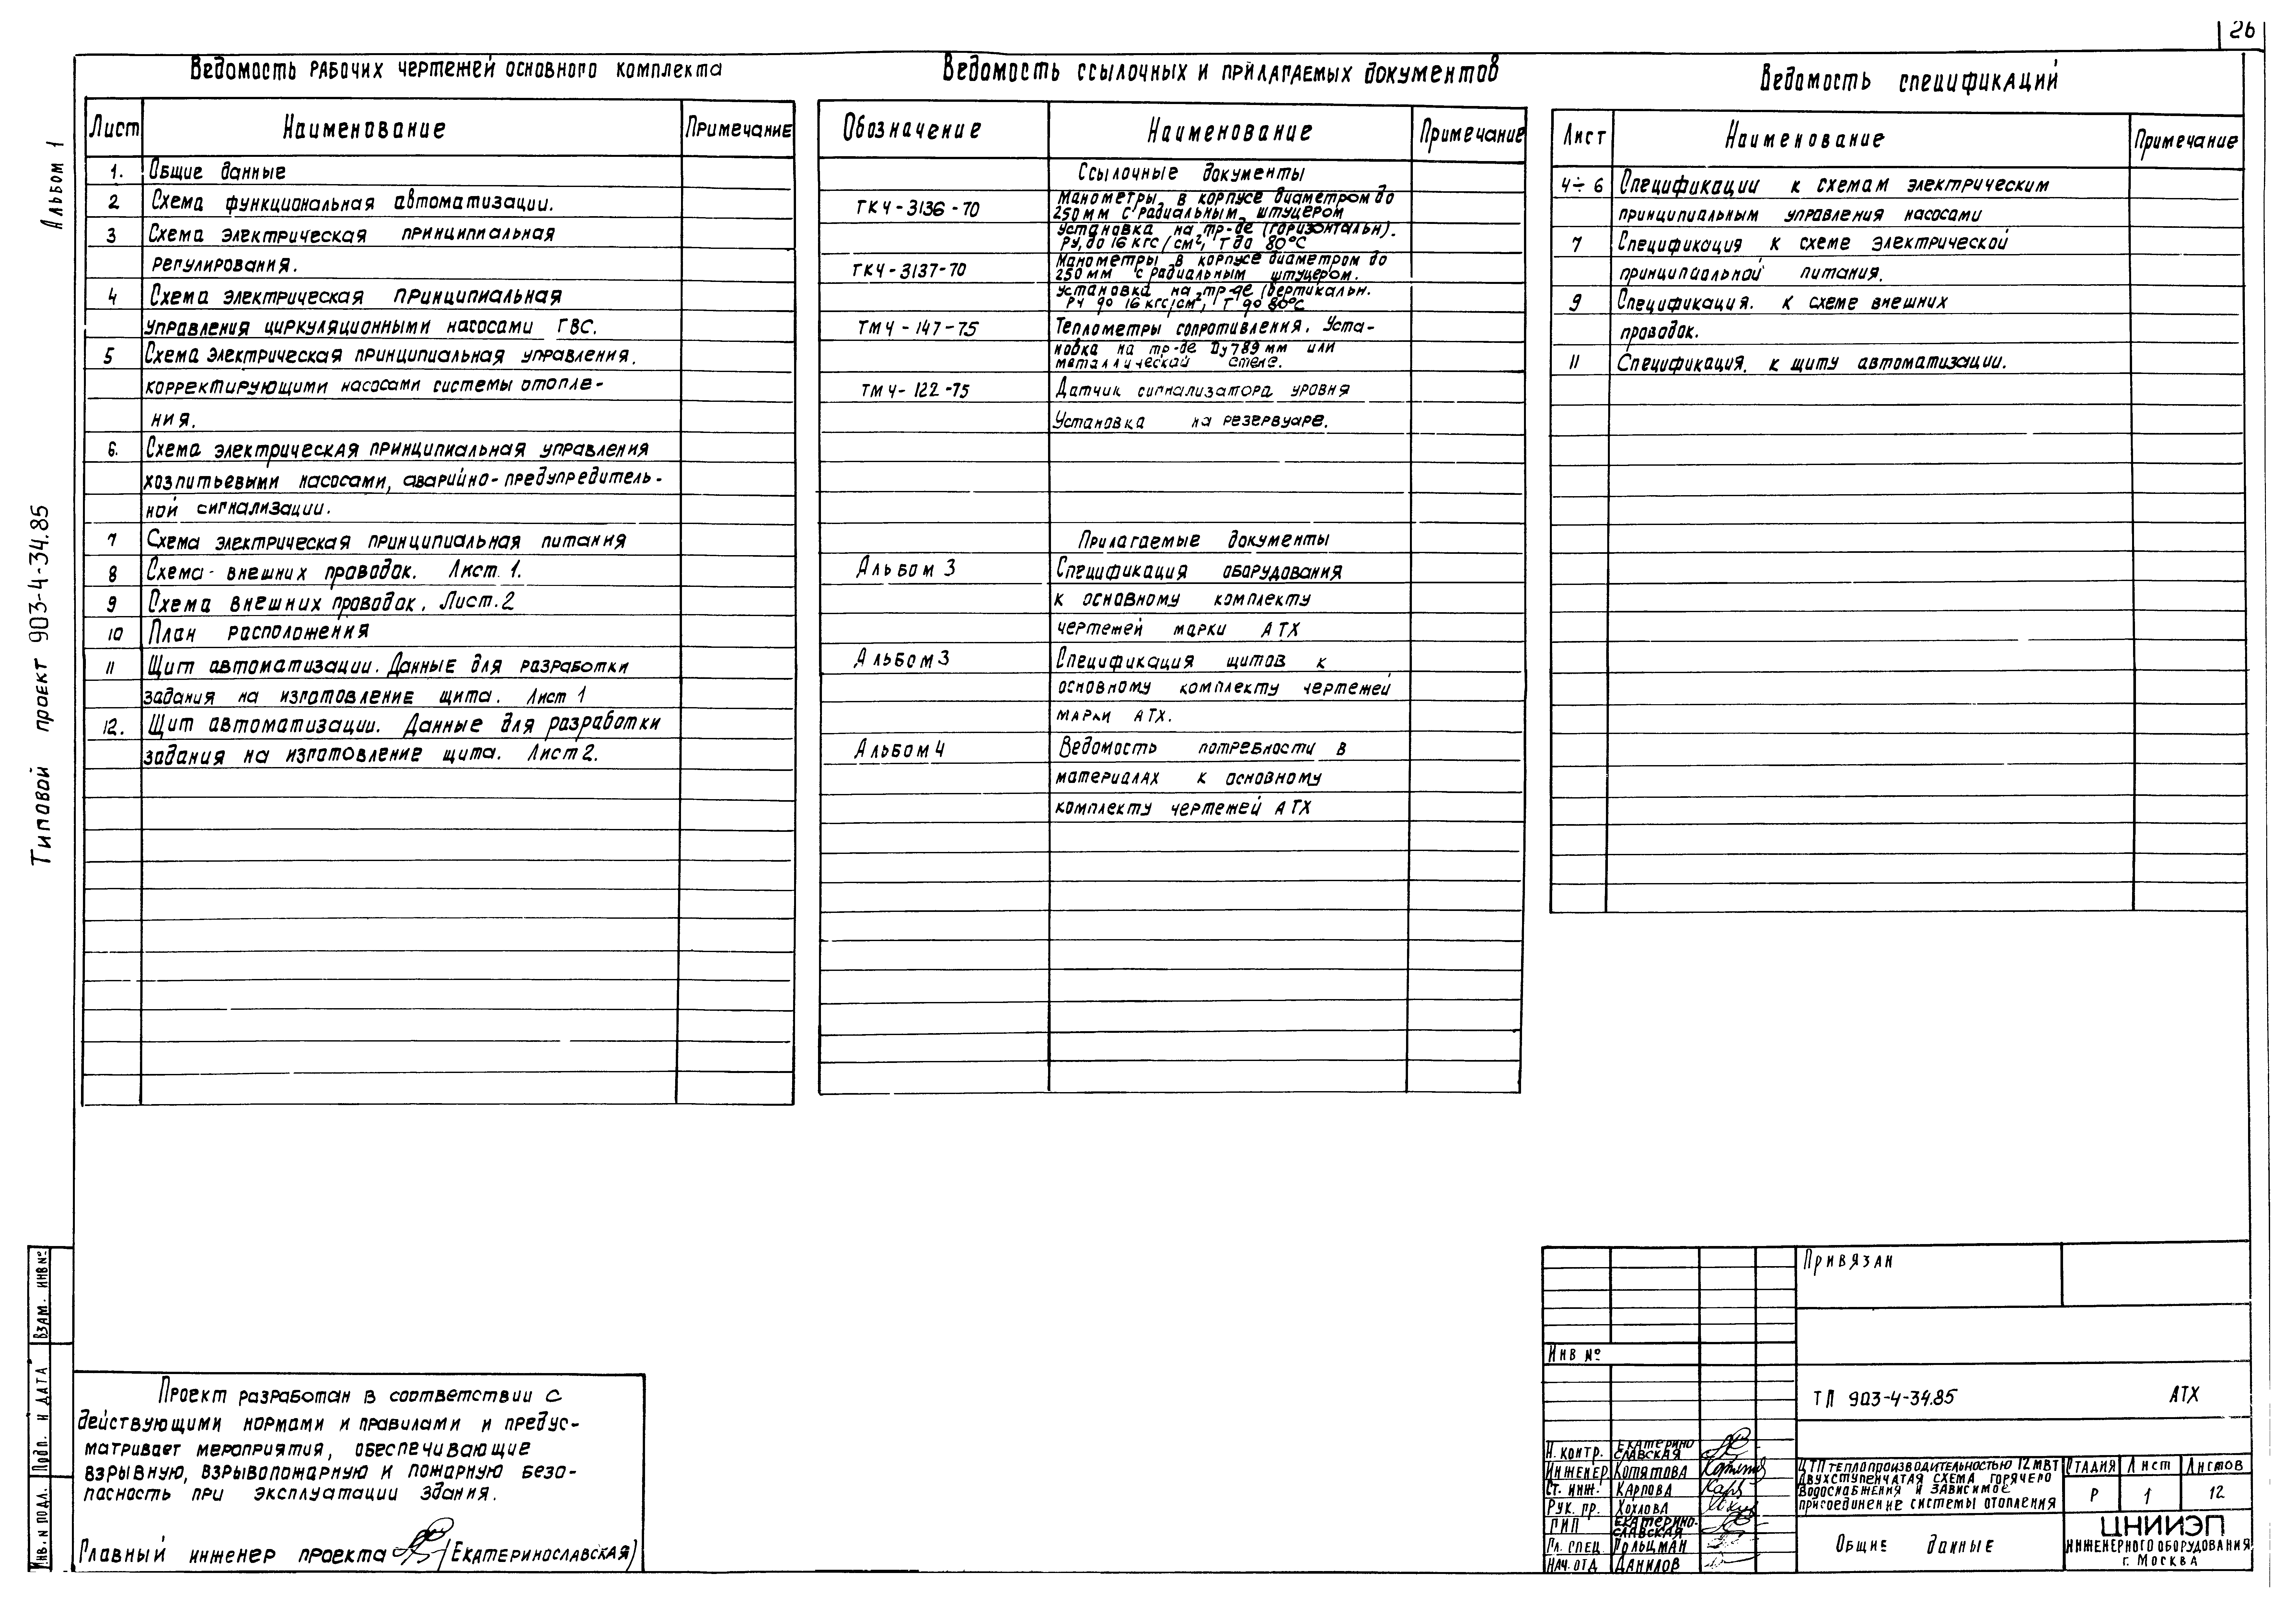 26
Альбом 1
Типовой проект 903-4-34.85
Ведомость рабочих чертежей основного комплекта
Лист Наименование Примечание
1. Общие данные
2 Схема функциональная автоматизации.
3 Схема электрическая принципиальная
регулирования.
4 Схема электрическая принципиальная
управления циркуляционными насосами ГВС.
5 Схема электрическая принципиальная управления.
корректирующими насосами системы отопле-
ния.
6. Схема электрическая принципиальная управления
хозпитьевыми насосами, аварийно-предупредитель-
ной сигнализации.
7 Схема электрическая принципиальная питания
8 Схема внешних проводок. Лист 1.
9 Схема внешних проводок. Лист. 2
10 План расположения
11 Щит автоматизации. Данные для разработки
задания на изготовление щита. Лист 1
12. Щит автоматизации. Данные для разработки
задания на изготовление щита. Лист 2.
Ведомость ссылочных и прилагаемых документов
Обозначение Наименование Примечание
Ссылочные документы
ТКЧ-3136-70 Манометры в корпусе диаметром до
250мм с радиальным штуцером
Установка на тр-де (горизонтальн).
Ру, до 16 кгс/см², Т до 80°С
ТКЧ-3137-70 Манометры в корпусе диаметром до
250мм с радиальным штуцером.
Установка на тр-де (вертикальн.
РЧ до 16 кгс/см², Т до 80°С
ТМЧ-147-75 Теплометры сопротивления. Уста-
новка на тр-де Dу789мм или
металлической стене.
ТМЧ-122-75 Датчик сигнализатора уровня
Установка на резервуаре.
Прилагаемые документы
Альбом 3 Спецификация оборудования
к основному комплекту
чертежей марки АТХ
Альбом 3 Спецификация щитов к
основному комплекту чертежей
марки АТХ.
Альбом 4 Ведомость потребности в
материалах к основному
комплекту чертежей АТХ
Ведомость спецификаций
Лист Наименование Примечание
4÷6 Спецификации к схемам электрическим
принципиальным управления насосами
7 Спецификация к схеме электрической
принципиальной питания.
9 Спецификация. к схеме внешних
проводок.
11 Спецификация. к щиту автоматизации.
Проект разработан в соответствии с
действующими нормами и правилами и предус-
матривает мероприятия, обеспечивающие
взрывную, взрывопожарную и пожарную безо-
пасность при эксплуатации здания.
Главный инженер проекта (Екатеринославская)
Взам. инв №
Подп. и дата
Инв. N подл.
Привязан
Инв №
ТП 903-4-34.85 АТХ
Н. контр. Екатерино
славская
Инженер Котятова
Ст. инж. Карпова
Рук. пр. Хохлова
ГИП Екатерино-
славская
Гл. спец. Гольцман
Нач. отд Данилов
ЦТП теплопроизводительностью 12 МВт
Двухступенчатая схема горячего
водоснабжения и зависимое
присоединение системы отопления
Стадия Лист Листов
Р 1 12
Общие данные
ЦНИИЭП
инженерного оборудования
г. Москва